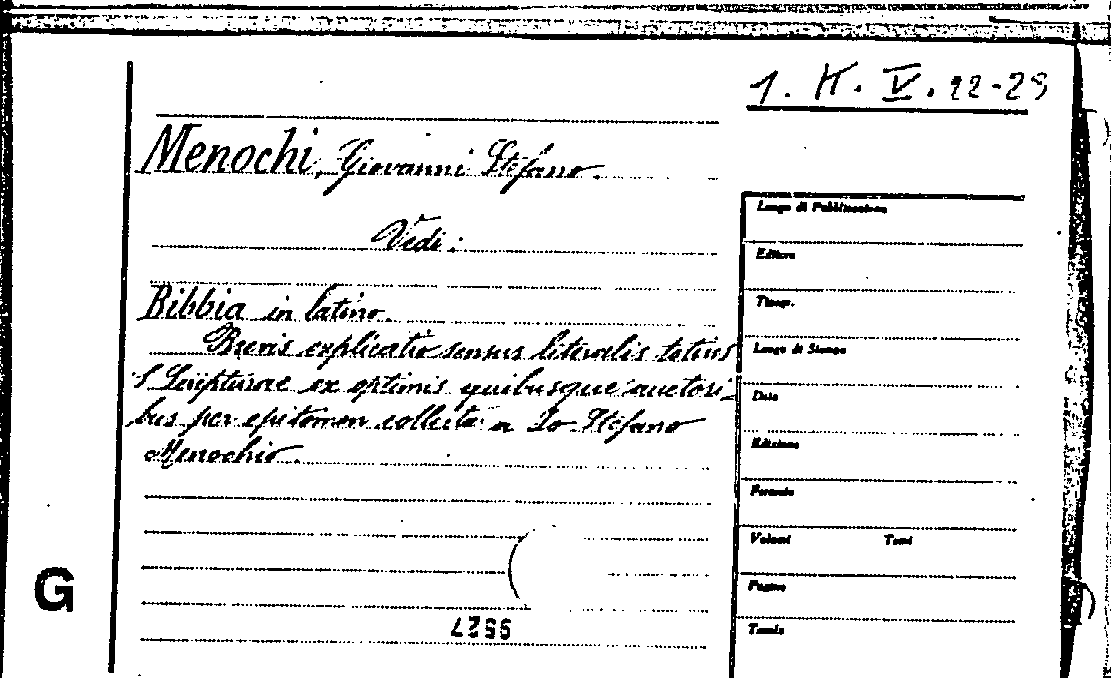 1. H. V. 22-29
Menochi, Giovanni Stefano.
Vedi:
Bibbia in latino.
Brevis explicatio sensus literalis totius
S Scripturae ex optimis quibusque auctori-
bus per epitomen collecta a Io. Stefano
Menochio.
Luogo di Pubblicazione
Editore
Tipogr.
Luogo di Stampa
Data
Edizione
Formato
Volumi Tomi
Pagine
Tavole
G